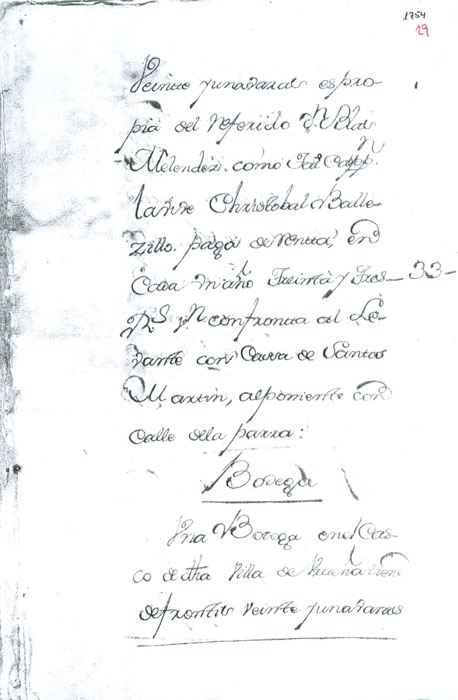 1754
29
Veinte y una varas es pro-
pia del referido Dn Blas
Melendez. como tal Cappn.
la vive Christobal Balle-
zillo. paga de renta, en
Cada un año treinta y tres - 33 -
Rs Vn confronta al Le-
vante con Cassa de Santos
Martin, al poniente con
calle de la parra:
Bodega
Una Bodega en el Cas-
co de dha Villa de
de frontis veinte y una varas